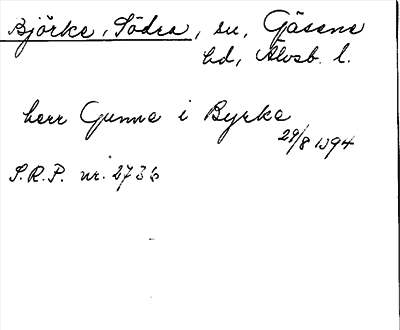 Björke, Södra, sn, Gäsene
hd, Älvsb. l.
herr Gunne i Byrke
29/8 1394
S.R.P. nr. 2736